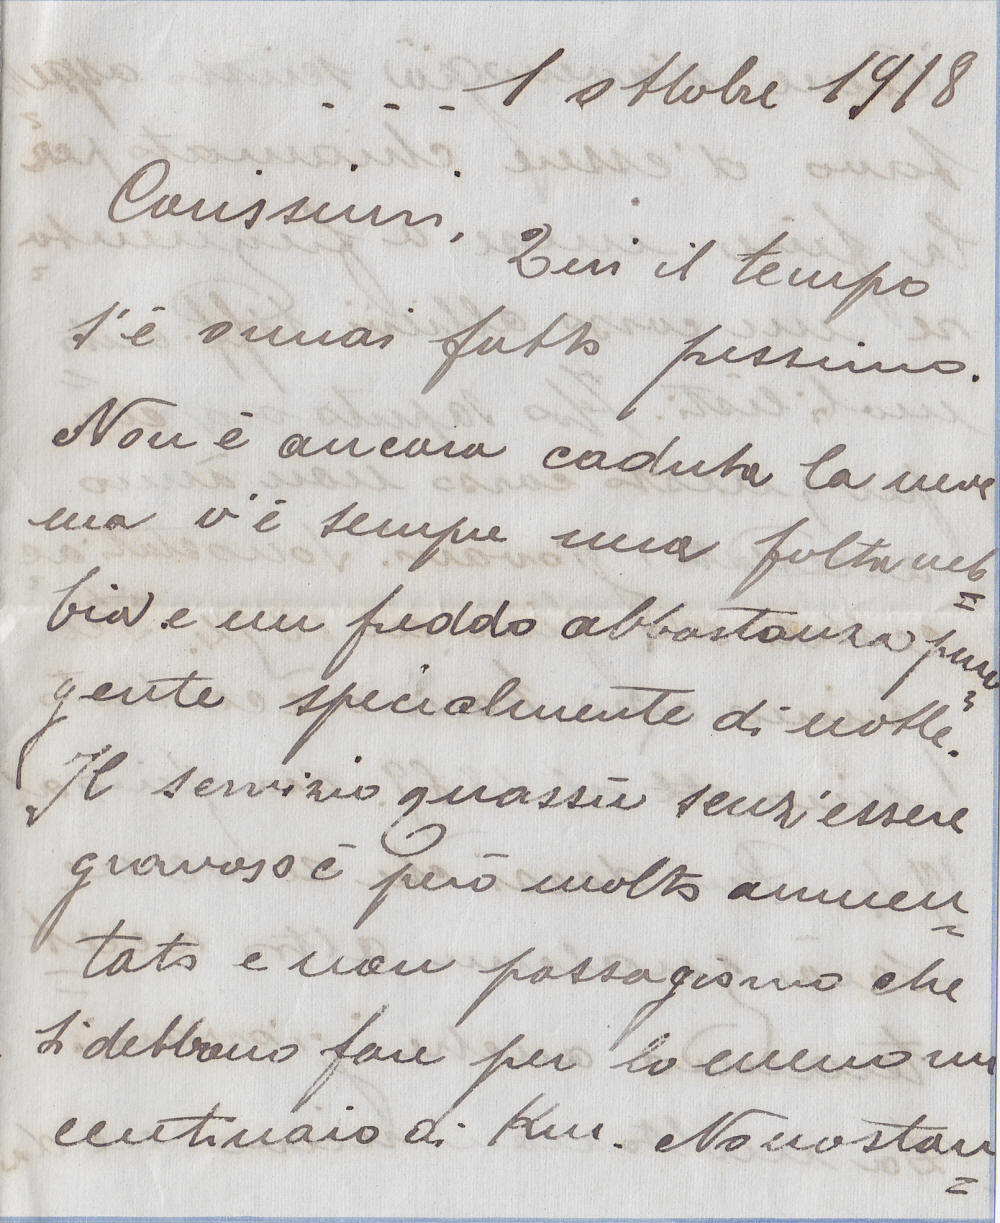 - - - - 1 ottobre 1918
Carissimi,
Ieri il tempo
s'è omai fatto pessimo.
Non è ancora caduta la neve
ma v'è sempre una folta neb=
bia e un freddo abbastanza pun=
gente specialmente di notte.
Il servizio quassù senz'essere
gravoso è però molto aumen=
tato e non passa giorno che
si debbano fare per lo meno un
centinaio di Km. Nonostan=